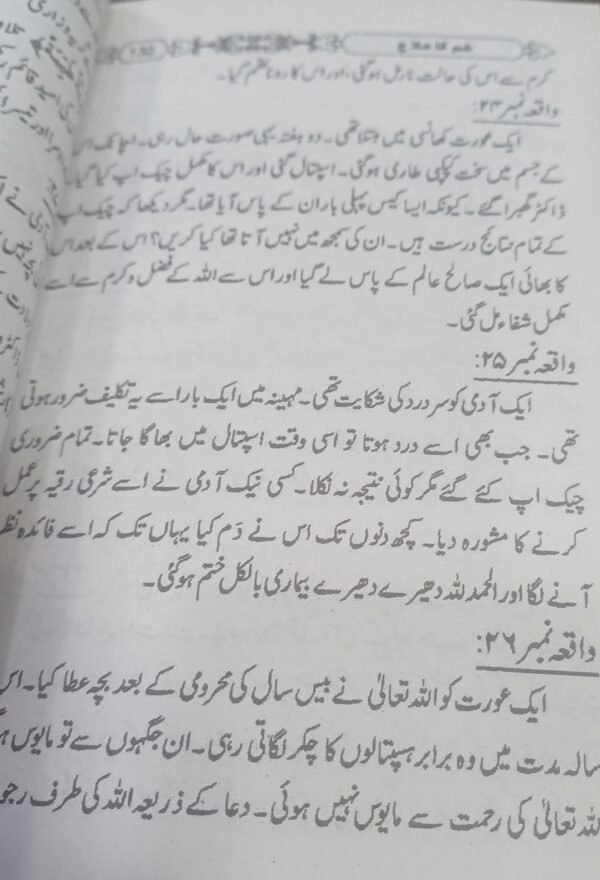 غم کا علاج
کرم سے اس کی حالت نارمل ہوگئی، اور اس کا رونا ختم گیا۔
واقعہ نمبر ۲۴:
ایک عورت کھانسی میں مبتلا تھی۔ دو ہفتہ یہی صورت حال رہی۔ اچانک اس
کے جسم میں سخت کپکپی طاری ہوگئی۔ اسپتال گئی اور اس کا مکمل چیک اپ کیا گیا۔
ڈاکٹر گھبرا گئے۔ کیونکہ ایسا کیس پہلی بار ان کے پاس آیا تھا۔ مگر دیکھا کہ چیک اپ
کے تمام نتائج درست ہیں۔ ان کی سمجھ میں نہیں آتا تھا کیا کریں؟ اس کے بعد اس
کا بھائی ایک صالح عالم کے پاس لے گیا اور اس سے اللہ کے فضل و کرم سے اسے
مکمل شفاء مل گئی۔
واقعہ نمبر ۲۵:
ایک آدمی کو سر درد کی شکایت تھی۔ مہینہ میں ایک بار اسے یہ تکلیف ضرور ہوتی
تھی۔ جب بھی اسے درد ہوتا تو اسی وقت اسپتال میں بھاگا جاتا۔ تمام ضروری
چیک اپ کئے گئے مگر کوئی نتیجہ نہ نکلا۔ کسی نیک آدمی نے اسے شرعی رقیہ پر عمل
کرنے کا مشورہ دیا۔ کچھ دنوں تک اس نے دَم کیا یہاں تک کہ اسے فائدہ نظر
آنے لگا اور الحمد للہ دھیرے دھیرے بیماری بالکل ختم ہوگئی۔
واقعہ نمبر ۲۶:
ایک عورت کو اللہ تعالیٰ نے بیس سال کی محرومی کے بعد بچہ عطا کیا۔ اس
سالہ مدت میں وہ برابر ہسپتالوں کا چکر لگاتی رہی۔ ان جگہوں سے تو مایوس
اللہ تعالیٰ کی رحمت سے مایوس نہیں ہوئی۔ دعا کے ذریعہ اللہ کی طرف